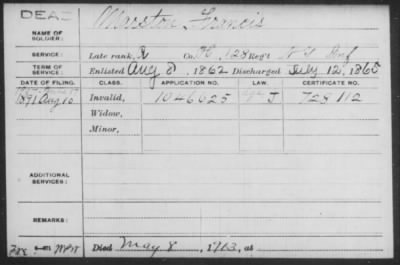 DEAD
Marston, Francis
NAME OF SOLDIER:
SERVICE: Late rank, Co. H, 128 Reg't N Y Inf
TERM OF SERVICE: Enlisted Aug 8, 1862 Discharged July 12, 1865
DATE OF FILING. CLASS. APPLICATION NO. LAW. CERTIFICATE NO.
1891 Aug 10 Invalid, 1046625 J 729 112
Widow,
Minor,
ADDITIONAL SERVICES:
REMARKS:
Died May 8, 1913, at